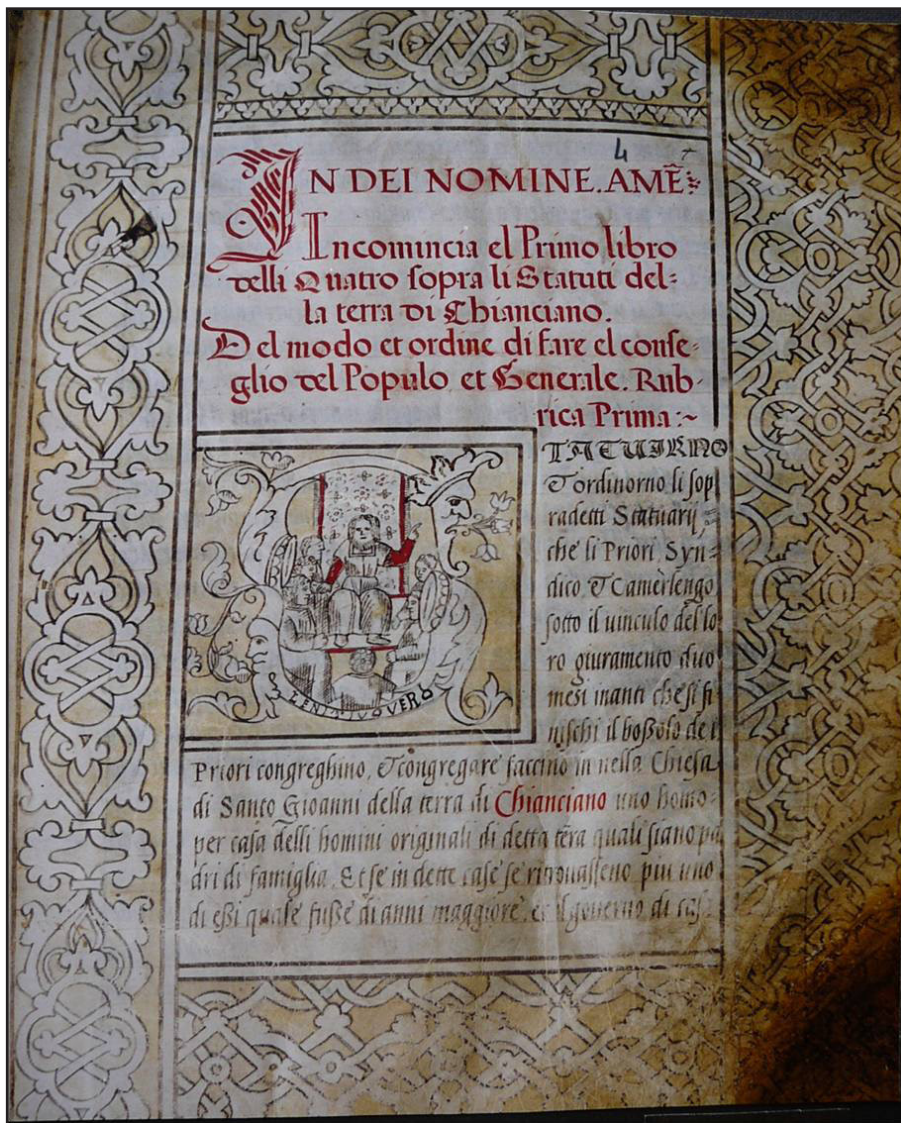 4
IN DEI NOMINE. AMẼ
Incomincia el Primo libro
delli Quatro sopra li Statuti del=
la terra di Chianciano.
Del modo et ordine di fare el conse=
glio del Populo et Generale. Rub=
rica Prima:~
TATUIRNO
& ordinorno li sop
radetti Statuarij
che li Priori Syn=
dico & Camerlengo
sotto il vinculo del lo
ro giuramento duo
mesi inanti che si fi
nischi il boßolo de i
Priori congreghino, & congregare faccino in nella Chiesa
di Santo Gioanni della terra di Chianciano uno homo
per casa delli homini originali di detta tẽra quali siano pa
dri di famiglia. Et se in dette case se più uno
di eßi quale fuße di anni maggiore et il governo di